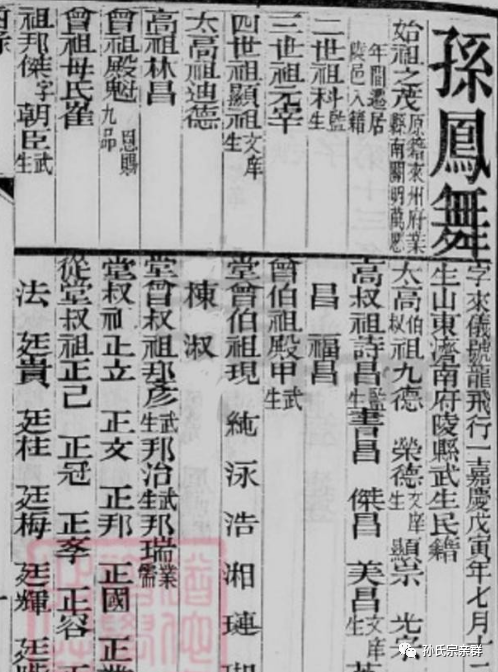 孫鳳舞
字來儀號龍飛行一嘉慶戊寅年七月十二
生山東濟南府陵縣武生民籍
始祖之茂原籍萊州府
縣南關明萬
年間遷居
陵邑入籍
二世祖科監生
三世祖元辛
四世祖顯祖文庠生
太高祖迪德
高祖林昌
曾祖殿魁九品恩賜
曾祖母氏崔
祖邦傑字朝臣武生
太高伯叔祖九德 榮德文庠生 顯宗 光
高叔祖詩昌監生書昌 傑昌 美昌文庠生
昌 福昌
曾伯祖殿甲武生
堂曾伯祖現 純 泳 浩 湘 璉
棟 淑
堂曾叔祖邦彥武生邦治武生邦瑞業儒
堂叔祖正立 正文 正邦 正國 正
從堂叔祖正己 正冠 正孝 正容 正
法 廷貴 廷桂 廷梅 廷輝 廷
孙氏宗亲群